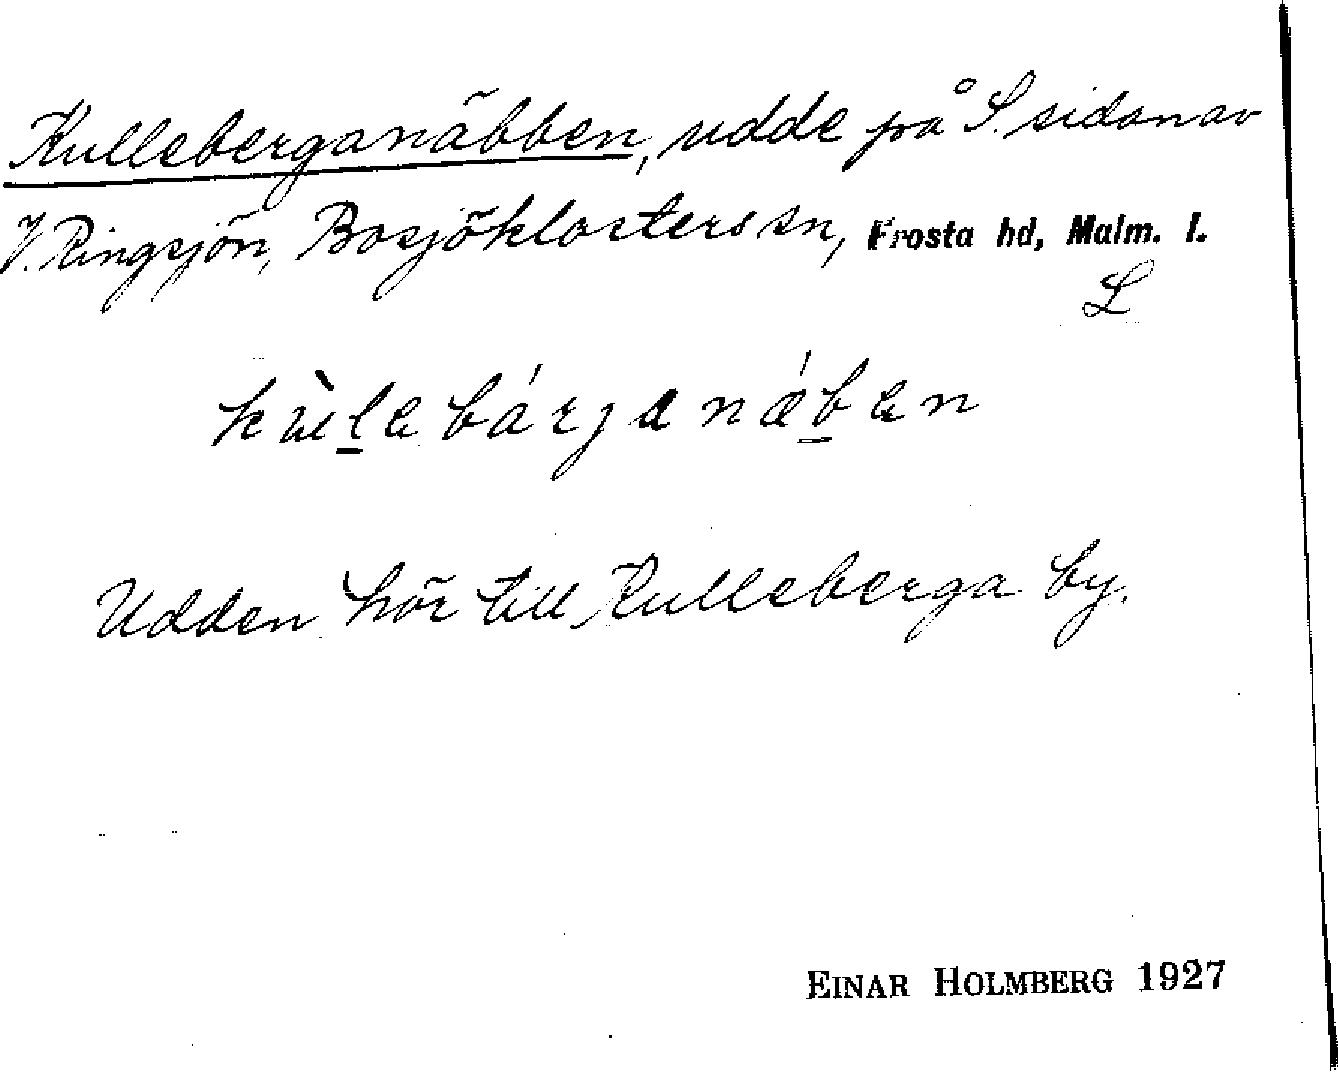 Kulleberganäbben, udde på S. sidan av
V. Ringsjön, Bosjöklosters sn, Frosta hd, Malm. l.
L
Udden hör till Kulleberga by.
EINAR HOLMBERG 1927